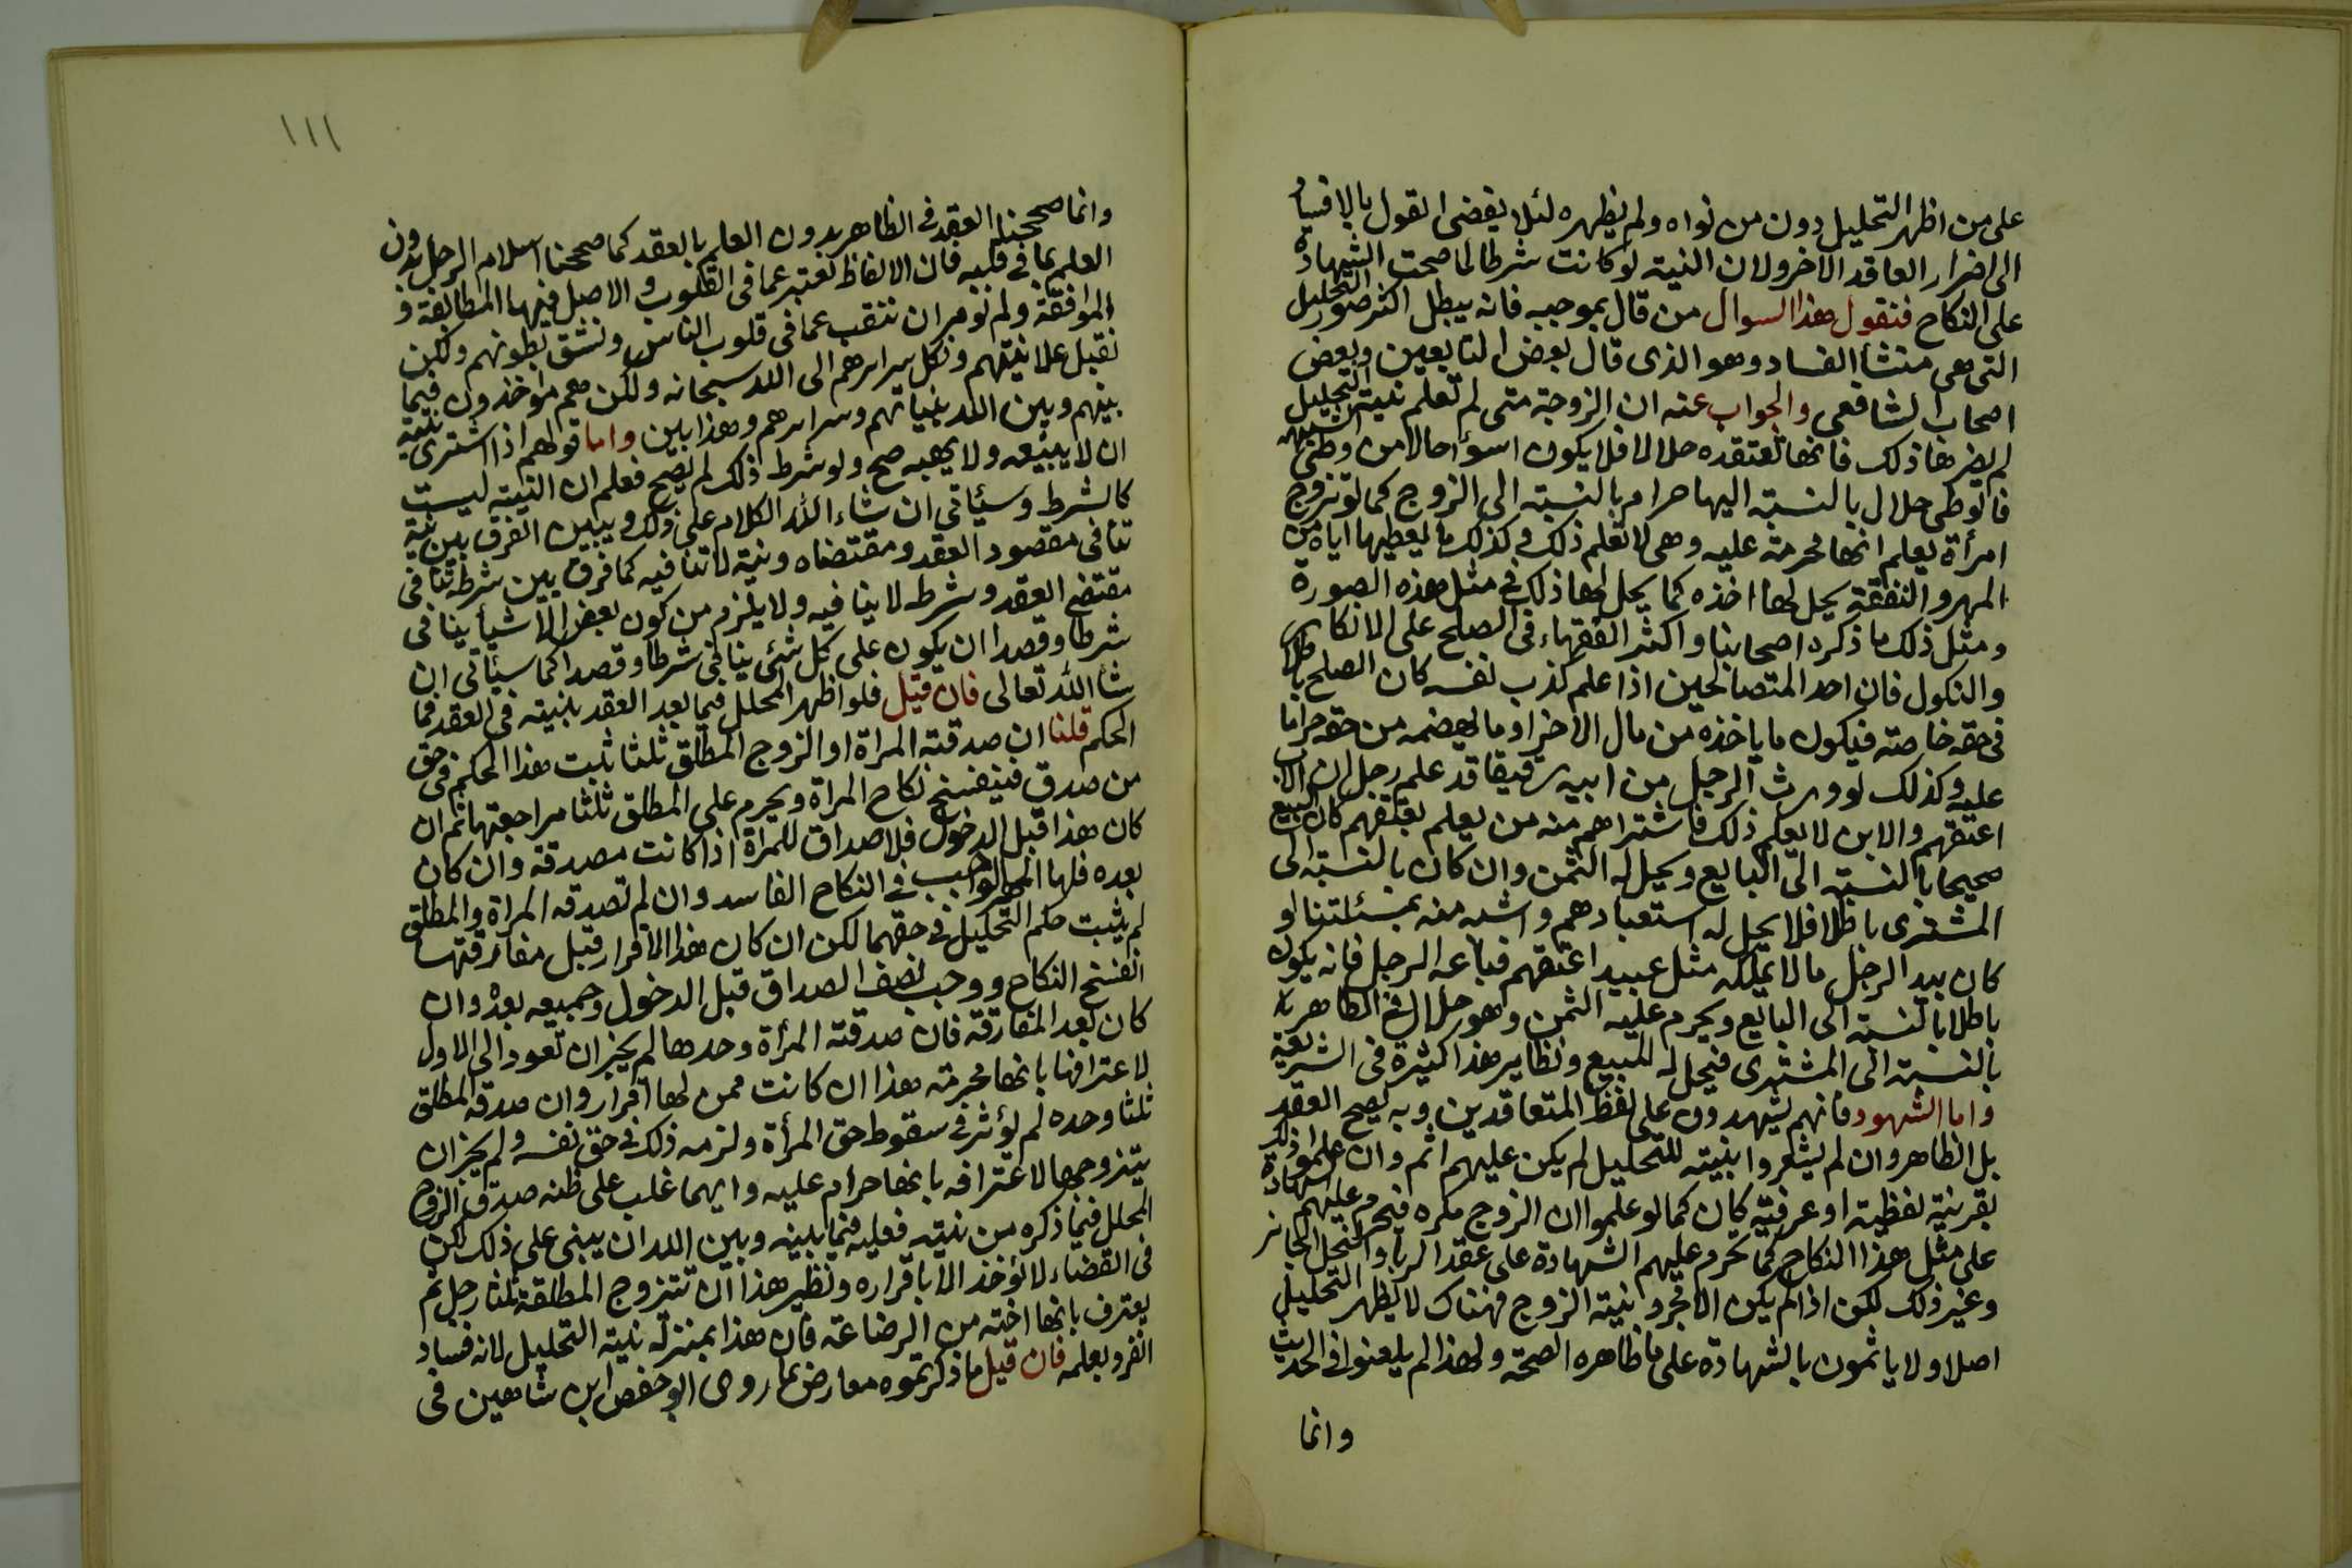 على من اظهر التحليل دون من نواه ولم يظهره لئلا يفضى القول بالافساد
الى اضرار العاقد الاخر ولان النية لو كانت شرطا لما صحت الشهادة
على النكاح فنقول هذا السوال من قال بموجبه فانه يبطل اكثر صور التحليل
التى هى منشأ الفساد وهو الذى قال بعض التابعين وبعض
اصحاب الشافعى والجواب عنه ان الزوجة متى لم تعلم نية التحليل
لم يضرها ذلك فانها تعتقده حلالا فلا يكون اسوأ حالا من وطئ الشبهه
فالوطى حلال بالنسبة اليها حرام بالنسبة الى الزوج كما لو تزوج
امرأة يعلم انها محرمة عليه وهى لا تعلم ذلك وكذلك ما يعطيها اياه من
المهر والنفقة يحل لها اخذه كما يحل لها ذلك في مثل هذه الصورة
ومثل ذلك ما ذكره اصحابنا واكثر الفقهاء فى الصلح على الانكار
والنكول فان احد المتصالحين اذا علم كذب نفسه كان الصلح باطلا
فى حقه خاصة فيكون ما ياخذه من مال الاخر او ما يهضمه من حقه حراما
عليه وكذلك لو ورث الرجل من ابيه رقيقا قد علم رجل ان الاب
اعتقهم والابن لا يعلم ذلك فاشتراهم منه من يعلم بعتقهم كان البيع
صحيحا بالنسبة الى البايع ويحل له الثمن وان كان بالنسبة الى
المشترى باطلا فلا يحل له استعبادهم واشبه منه بمسئلتنا لو
كان بيد الرجل ما لا يملكه مثل عبيد اعتقهم فباعه الرجل فانه يكون
باطلا بالنسبة الى البايع ويحرم عليه الثمن وهو حلال فى الظاهر
بالنسبة الى المشترى فيحل له المبيع ونظاير هذا كثيرة فى الشريعة
واما الشهود فانهم يشهدون على لفظ المتعاقدين وبه يصح العقد
بل الظاهر وان لم يشعروا بنية للتحليل لم يكن عليهم اثم وان علموا ذلك
بقرينة لفظية او عرفية كان كما لو علموا ان الزوج مكره فيحرم عليهم الشهادة
على مثل هذا النكاح كما تحرم عليهم الشهادة على عقد الربا والنحل الجائز
وغير ذلك لكن اذا لم يكن الا مجرد نية الزوج فهناك لا يظهر التحليل
اصلا ولا ياثمون بالشهادة على ما ظاهره الصحة ولهذا لم يلعنوا فى الحديث
وانما
١١١
وانما صححنا العقد فى الظاهر بدون العلم بالعقد كما صححنا اسلام الرجل بدون
العلم بما فى قلبه فان الالفاظ تعتبر عما فى القلوب والاصل فيها المطابقة و
الموافقة ولم نومر ان ننقب عما فى قلوب الناس ونشق بطونهم ولكن
نقبل علانيتهم ونكل سرايرهم الى الله سبحانه ولكن هم مواخذون فيما
بينهم وبين الله بنياتهم وسرايرهم وهذا بين واما قولهم اذا اشترى بنية
ان لا يبيعه ولا يهبه صح ولو شرط ذلك لم يصح فعلم ان النية ليست
كالشرط وسيأتى ان شاء الله الكلام على ذلك ويبين الفرق بين نية
تنافى مقصود العقد ومقتضاه ونية لا تنافيه كما فرق بين شرط تنافى
مقتضى العقد وشرط لا ينافيه ولا يلزم من كون بعض الاشيأ ينافى
شرطا وقصدا ان يكون على كل شئ ينافى شرطا وقصدا كما سيأتى ان
شأ الله تعالى فان قيل فلو اظهر المحلل فيما بعد العقد بنيته فى العقد فما
الحكم قلنا ان صدقته المراة او الزوج المطلق ثلثا ثبت هذا الحكم فى حق
من صدق فينفسخ نكاح المراة ويحرم على المطلق ثلثا مراجعتها ثم ان
كان هذا قبل الدخول فلا صداق للمراة اذا كانت مصدقة وان كان
بعده فلها المهر الواجب فى النكاح الفاسد وان لم تصدقه المراة والمطلق
لم يثبت حكم التحليل فى حقهما لكن ان كان هذا الاقرار قبل مفارقتها
انفسخ النكاح ووجب نصف الصداق قبل الدخول وجميعه بعده وان
كان بعد المفارقة فان صدقته المرأة وحدها لم يجز ان تعود الى الاول
لاعترافها بانها محرمة هذا ان كانت ممن لها اقرار وان صدقه المطلق
ثلثا وحده لم يؤثر فى سقوط حق المرأة ولزمه ذلك فى حق نفسه ولم يجز ان
يتزوجها لاعترافه بانها حرام عليه وايهما غلب على ظنه صدق الزوج
المحلل فيما ذكره من نيته فعليه فيما بينه وبين الله ان يبنى على ذلك لكن
فى القضاء لا يؤخذ الا باقراره ونظير هذا ان تتزوج المطلقة ثلثا رجل ثم
يعترف بانها اخته من الرضاعة فان هذا بمنزلة نية التحليل لانه فساد
انفرد بعلمه فان قيل ما ذكرتموه معارض بما روى ابو حفص ابن شاهين فى